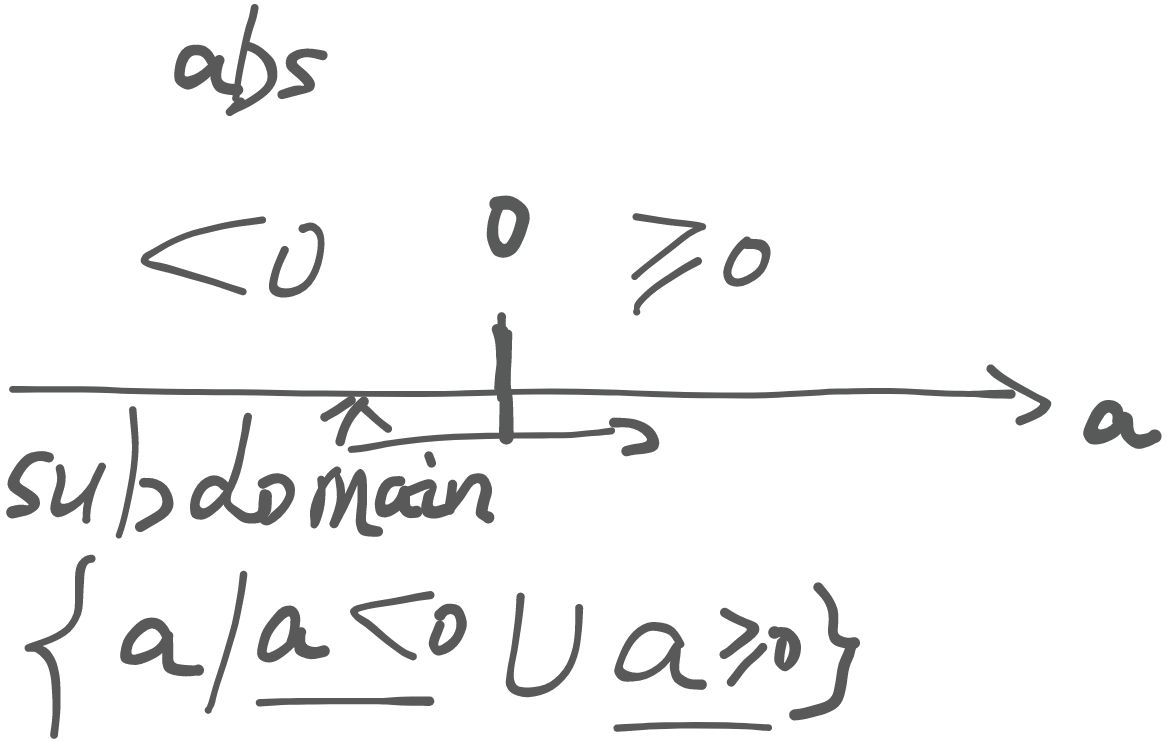 abs
<0 0 ≥0
a
subdomain
{a|a<0 ∪ a≥0}